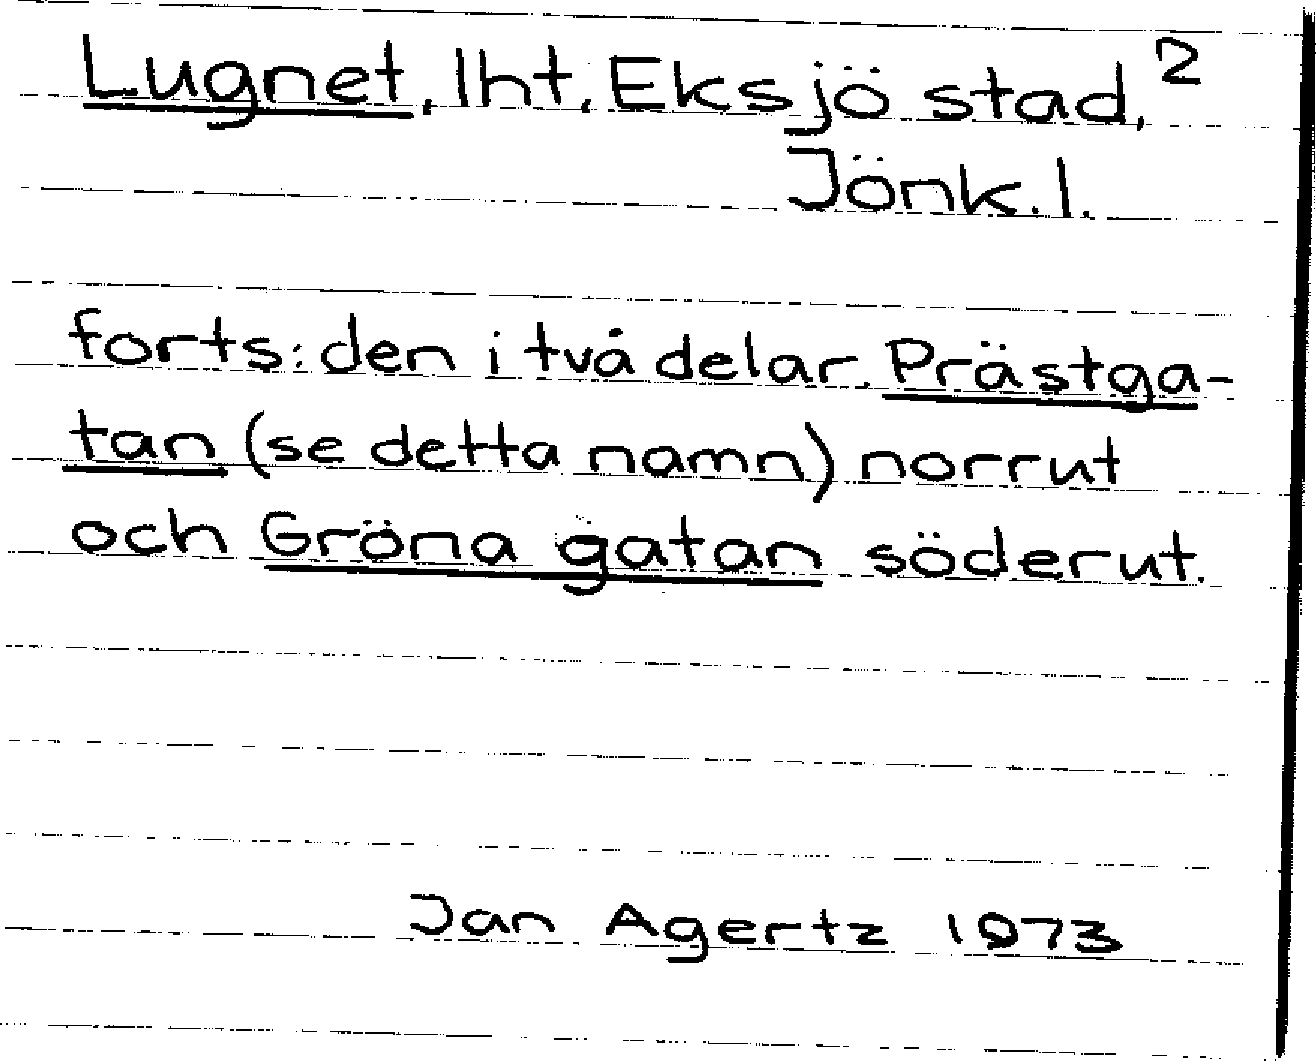 Lugnet, lht, Eksjö stad, 2
Jönk. l.
forts: den i två delar. Prästga-
tan (se detta namn) norrut
och Gröna gatan söderut.
Jan Agertz 1973